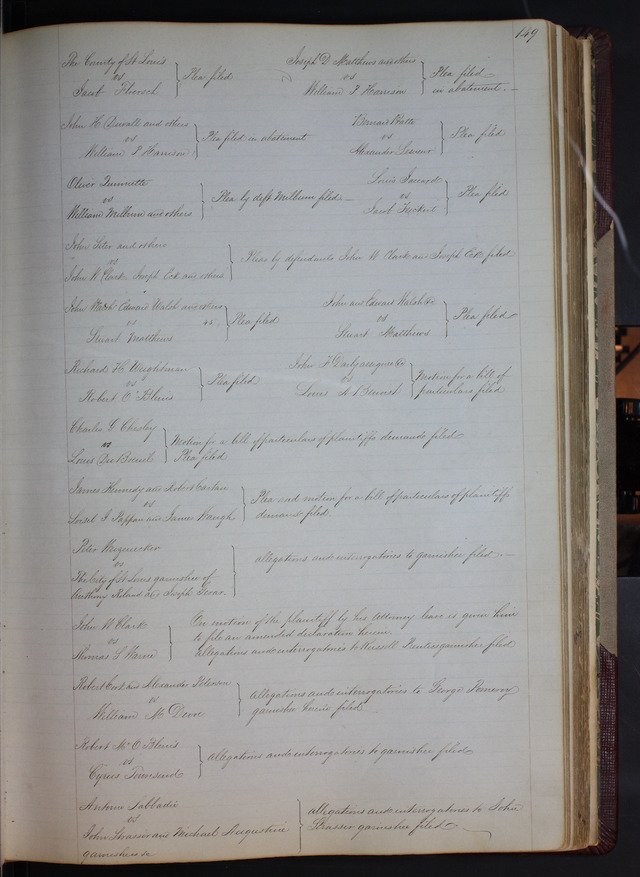 149
The County of St Louis
vs
Jacob
Plea filed
Joseph D Matthews and others
vs
William P Harrison
Plea filed
in abatement.
John H and others
vs
William P Harrison
Plea filed in abatement
Bernard
vs
Alexander
Plea filed
Oliver Quinnette
vs
William Milburn and others
Plea by deft Milburn filed
Louis
vs
Jacob
Plea filed
John and others
vs
John W Clark Joseph Eck and others
Pleas by defendants John W Clark and Joseph Eck filed
John Walsh Edward Walsh and others
vs
Stuart Matthews
Plea filed
John and Edward Walsh &c
vs
Stuart Matthews
Plea filed
Richard Weightman
vs
Robert O'Blenis
Plea filed
John F Darby assignee &c
vs
Louis A Bennet
Motion for a bill of
particulars filed
Charles G Chesley
vs
Louis DuBreuil
Motion for a bill of particulars of plaintiffs demands filed
Plea filed
James Kennedy and Robert
vs
I Tappan and James Waugh
Plea and motion for a bill of particulars of plaintiffs
demand filed
Peter
vs
The City of St Louis garnishee of
Anthony and Joseph
allegations and interrogatories to garnishee filed
John W Clark
vs
Thomas S
On motion of the plaintiff by his Attorney leave is given him
to file an amended declaration herein.
allegations and interrogatories to Russell garnishee filed
Robert and Alexander Peterson
vs
William
allegations and interrogatories to George Pomeroy
garnishee herein filed
Robert Mc O Blenis
vs
Cyrus Townsend
allegations and interrogatories to garnishee filed
Antonio Sabbadie
vs
John Strasser and Michael Augustine
garnishees &c
allegations and interrogatories to John
Strasser garnishee filed